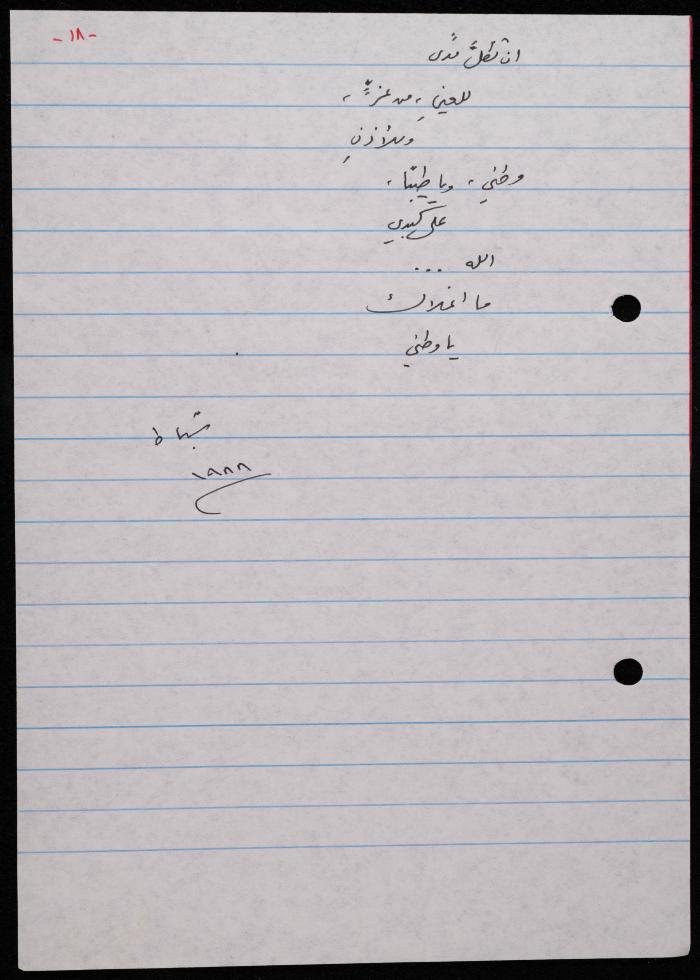 -١٨-
ان تَظَلَّ مَدى
للعينِ، من غزَّةٍ،
وللأذنِ
وطني، ويا طيبًا،
على كبدي
الله ...
ما اغلاك
يا وطني
شباط
١٩٨٨